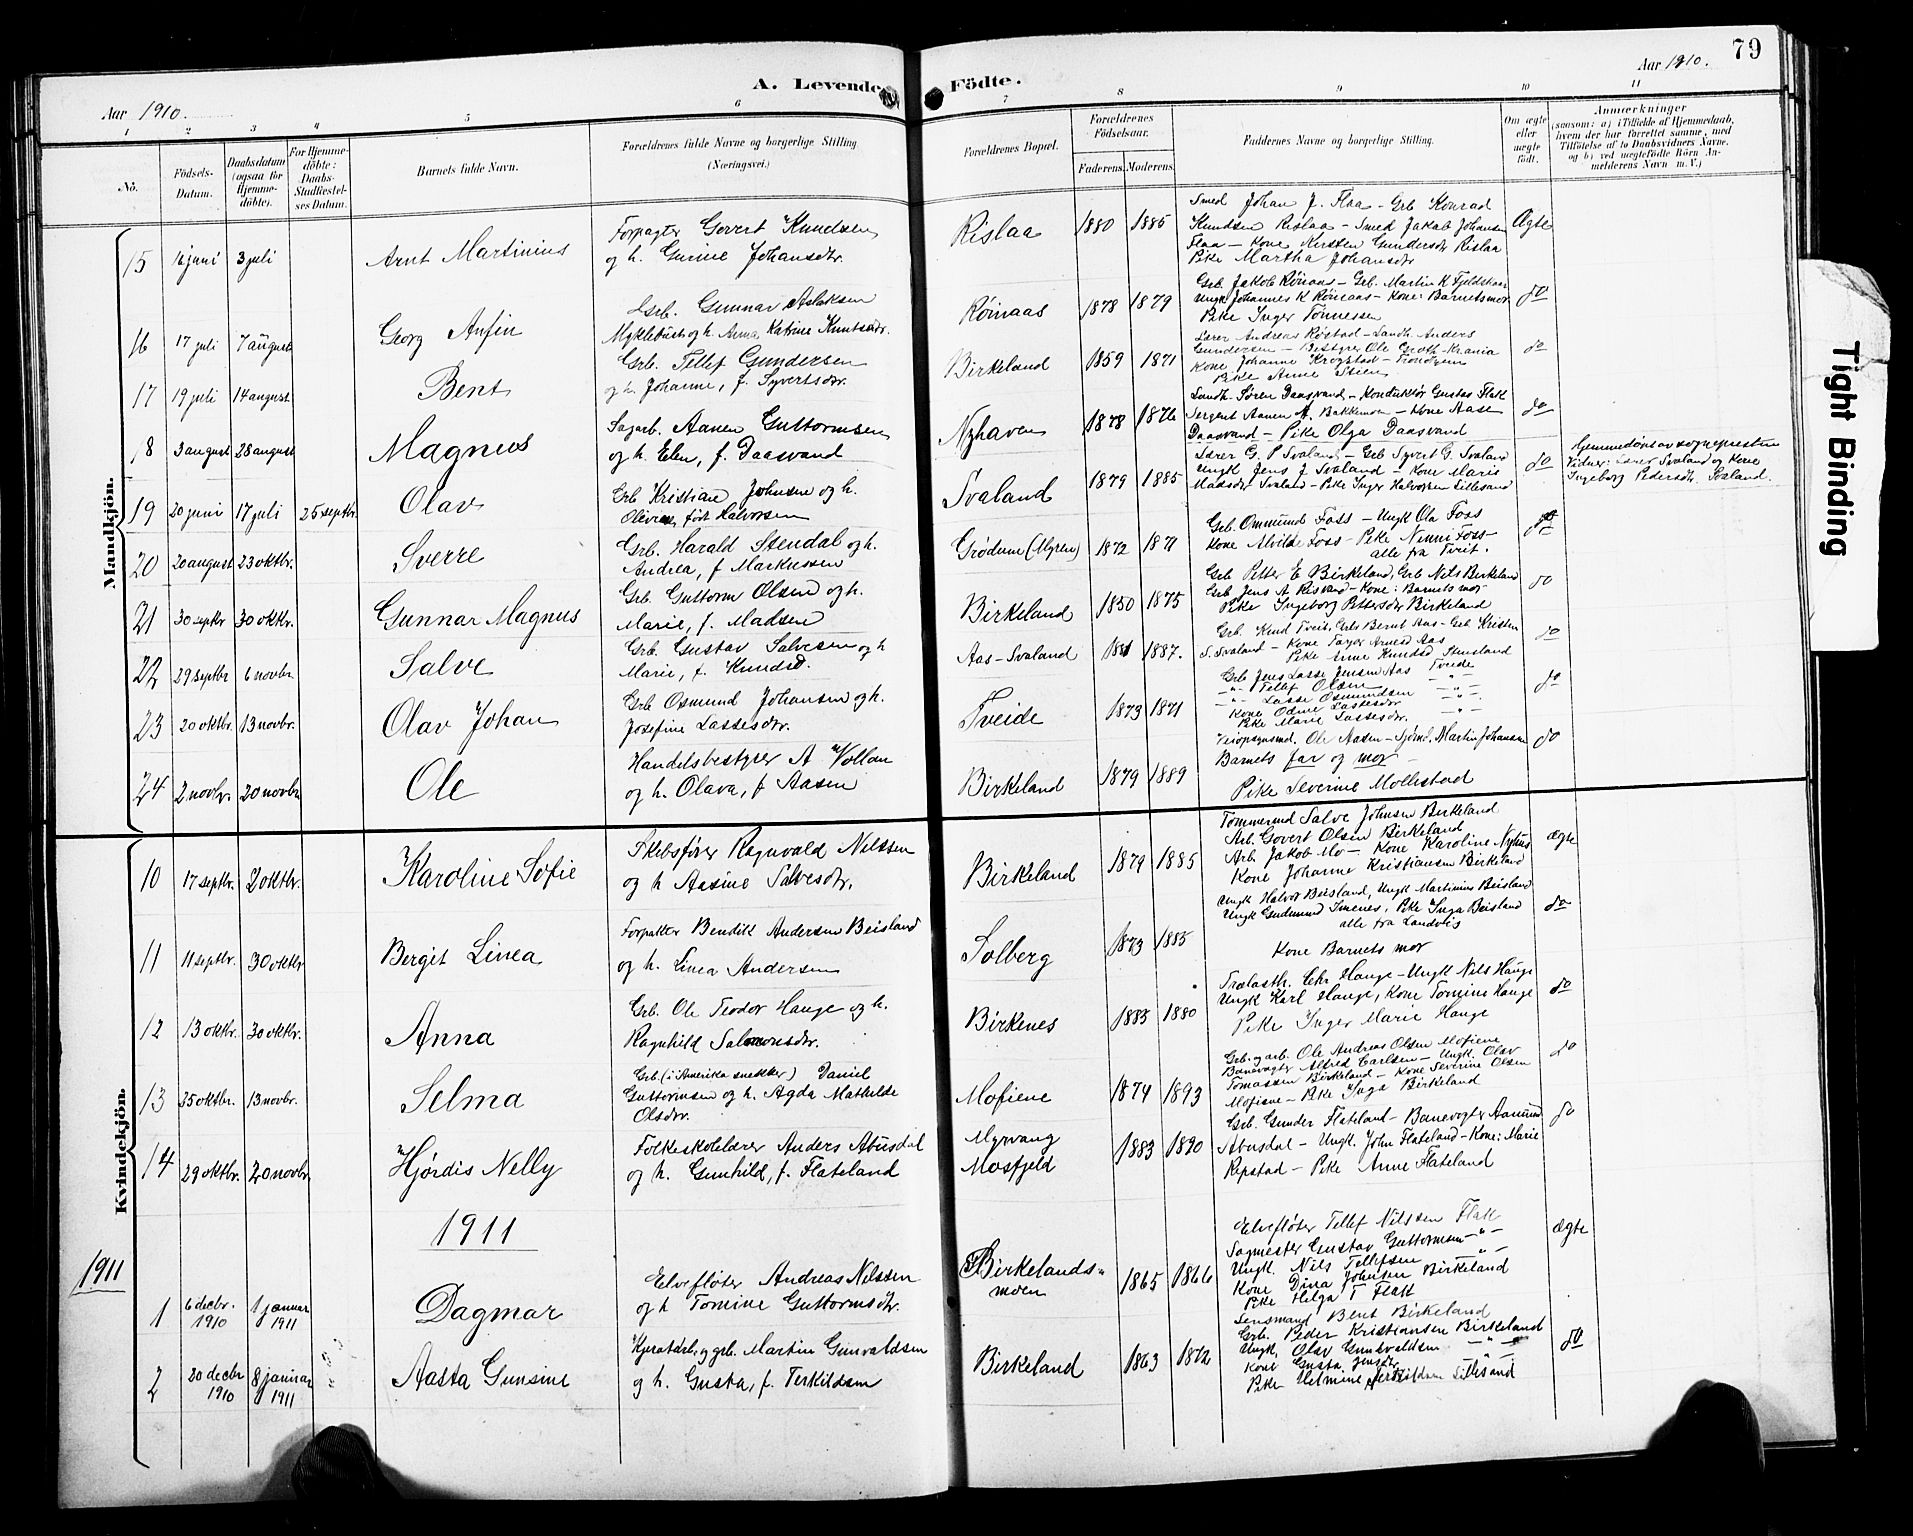 79
Aar 1910.
A. Levende
Födte.
Aar 1910.
1 2 3 4 5 6 7 8 9 10 11
No.
Födsels-
Datum.
Daabsdatum
(ogsaa for
Hjemme-
döbte).
For Hjemme-
döbte:
Daabs-
Stadfæstel-
ses Datum.
Barnets fulde Navn.
Forældrenes fulde Navne og borgerlige Stilling
(Næringsvei.)
Forældrenes Bopæl.
Forældrenes
Födselsaar.
Faderens.
Moderens.
Faddernes Navne og borgerlige Stilling.
Om ægte
eller
uægte
født.
Anmærkninger
(saasom: a) i Tilfælde af Hjemmedaab,
hvem der har forrettet samme, med
Tilföielse af to Daabsvidners Navne.
og b) ved uegtefödte Börn An-
melderens Navn m. V.)
Mandkjön.
15 juni 3 juli Arnt Martinius
Forpagter Govert Knudsen
og h. Gurine Johansdtr.
Rislaa 1880 1885
Smed Johan J. Flaa - Grb Konrad
Knudsen Rislaa - Smed Jakob Johansen
Flaa - Kone Kersten Gundersdtr Rislaa
Pike Martha Johansdtr
Ægte
16 17 juli 7 august Georg Anfin
Grb. Gunnar Aslaksen
Myklebust og h. Anna Katrine Knutsdtr.
Røinaas 1878 1879
Grb. Jakob Røinaas - Grb. Martin K Fjeldskaar
Ungk Johannes K Røinaas - Kone: Barnets mor
Pike Inger Tønnessen
do
17 19 juli 14 august Bent
Grb. Tellef Gundersen
og h. Johanne, f. Syvertsdtr.
Birkeland 1859 1871
Lærer Andreas Røstad - Landh. Anders
Gundersen - Bestyrer Ole Groth - Krania
Kone Johanne Krogstad - Trondhjem
Pike Anne Stien
do
18 3 august 28 august Magnus
Sagarb. Aanen Guttormsen
og h. Elen, f. Daasvand
Nyhaven 1878 1876
Landh. Søren Daasvand - Konduktør Gustav Flak
Sergent Aanen A. Bakkemoen - Kone Aase
Daasvand - Pike Olga Daasvand
do
19 20 juni 17 juli 25 septbr. Olav
Grb Kristian Johnsen og h.
Olivia, født Halvorsen
Svaland 1879 1885
Lærer G. P Svaland - Grb Syvert G. Svaland
Ungk Jens J. Svaland - Kone Maris
Madsdtr Svaland - Pike Inger Halvorsen Lillesand
do
Hjemmedøpt av sognepresten
Vidner: Lærer Svaland og Kone
Ingeborg Pedersdtr. Svaland.
20 20 august 23 oktbr. Sverre
Grb. Harald Stendal og h.
Andrea, f Markussen
Grødum (Myren) 1872 1871
Grb. Ommund Foss - Ungk Ola Foss
Kone Alvilde Foss - Pike Ninni Foss -
alle fra Tveit.
do
21 30 septbr 30 oktbr. Gunnar Magnus
Grb Guttorm Olsen og h.
Marie, f. Madsen
Birkeland 1850 1875
Grb Petter E Birkeland, Grb Nils Birkeland
Grb Jens A Risvand - Kone: Barnets mor
Pike Ingeborg Pettersdtr Birkeland
do
22 29 septbr 6 novbr. Salve
Grb. Gustav Salvesen og h
Marie, f. Knudsd.
Aas - Svaland 1881 1887.
Grb. Knud Tveit, Grb Bernt Aas - Grb Kristen
S. Svaland - Kone Tarjer Arnesd Aas
Pike Anne Knudsd Stensland
do
23 20 oktbr. 13 novbr. Olav Johan
Grb Osmund Johansen og h.
Josefine Lassesdtr.
Tveide 1873 1871
Grb Jens Lasse Jensen Aas Tveide
-"- Tellef Olsen -"-
-"- Lasse Osmundsen -"-
Kone Odine Lassesdtr -"-
Pike Marie Lassesdtr. -"-
do
24 2 novbr. 20 novbr. Ole
Handelsbestyrer A Vollan
og h. Olava, f Aasen
Birkeland 1879 1889
Veiopsynsmd. Ole Aasen - Sjømd. Martin Johansen
Barnets far og mor
Pike Severine Mollestad
do
Kvindekjön.
10 17 septbr. 2 oktbr. Karoline Sofie
Skibsfører Ragnvald Nilssen
og h Aasine Salvesdtr.
Birkeland 1879 1885
Tømmermd Salve Johnsen Birkeland
Arb. Govert Olsen Birkeland
Arb Jakob Mo - Kone Karoline Nyhus
Kone Johanne Kristiansen Birkeland
ægte
11 11 septbr. 30 oktbr Bergit Linea
Forpakter Bendik Andersen Beisland
og h. Linea Andersen
Solberg 1873 1885
Ungk Halvor Beisland, Ungk Martinius Beisland
Ungk Gudmund Imenes, Pike Inga Beisland
alle fra Landvik
Kone Barnets mor
do
12 13 oktbr. 30 oktbr. Anna
Grb. Ole Teodor Hauge og h.
Ragnhild Salmonsdtr.
Birkenes 1883 1880
Trælasth. Chr Hauge - Ungk Nils Hauge
Ungk Karl Hauge, Kone Tomine Hauge
Pike Inger Marie Hauge
do
13 25 oktbr. 13 novbr. Selma
Grb. (i Amerika snekker) Daniel
Guttormsen og h. Agda Mathilde
Olsdtr.
Mofiene 1874 1893
Grb. og arb. Ole Andreas Olsen Mofiene
Banevogter Alfred Carlsen - Ungk. Olav
Tomassen Birkeland - Kone Severine Olsen
Mofiene - Pike Inga Birkeland
do
14 29 oktbr. 20 novbr. Hjørdis Nelly
Folkeskolelærer Anders Abusdal
og h. Gunhild, f. Flateland
Myrvang
Mosfjeld
1883 1890
Grb. Gunder Flateland - Banevogter Aanund
Abusdal - Ungk. John Flateland - Kone: Marie
Repstad - Pike Anne Flateland
do
1911
1911
1 6 decbr.
1910 1 januar
1911
Dagmar
Elvefløter Andreas Nilssen
og h Tomine Guttormsdtr.
Birkelands-
moen
1865 1866
Elvefløter Tellef Nilssen Flak
Sagmester Gustav Guttormsen -"-
Ungk. Nils Tellefsen -"-
Kone Dina Johnsen Birkeland
Pike Helga T Flak
ægte
2 20 decbr
1910 8 januar
1911
Aasta Gunsine
Kjøratarb. og grb. Martin Gunvaldsen
og h. Gusta, f. Terkildsen
Birkeland 1863 1872
Lensmand Bent Birkeland
Grb. Peder Kristiansen Birkeland
Ungk. Olav Gunvaldsen -"-
Kone Gusta Jensdtr -"-
Pike Helmine Terkildsen Lillesand
do
Tight Binding